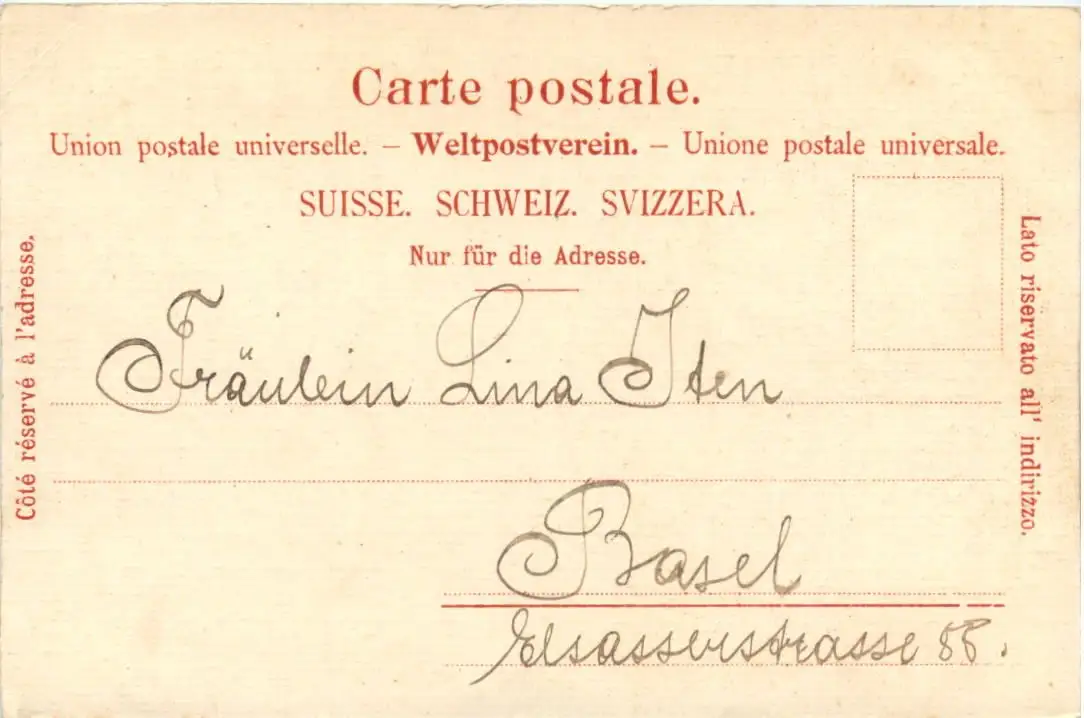 Carte postale.
Union postale universelle. – Weltpostverein. – Unione postale universale.
SUISSE. SCHWEIZ. SVIZZERA.
Nur für die Adresse.
Côté réservé à l'adresse.
Lato riservato all' indirizzo.
Fräulein Lina Iten
Basel
Elsasserstrasse